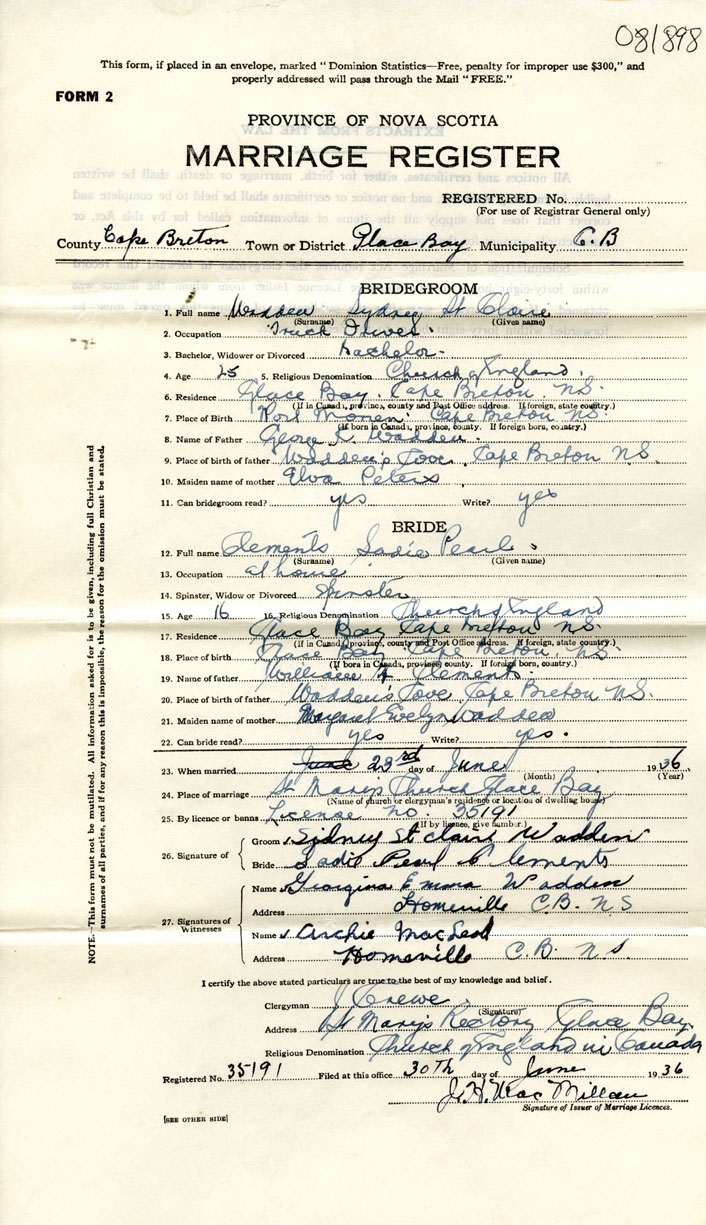 08/898
This form, if placed in an envelope, marked "Dominion Statistics—Free, penalty for improper use $300," and
properly addressed will pass through the Mail "FREE."
FORM 2
PROVINCE OF NOVA SCOTIA
MARRIAGE REGISTER
REGISTERED No.
(For use of Registrar General only)
County Cape Breton Town or District Glace Bay Municipality C.B
BRIDEGROOM
1. Full name Wadden Sydney St Claire
(Surname) (Given name)
2. Occupation Truck Driver.
3. Bachelor, Widower or Divorced bachelor-
4. Age 25 5. Religious Denomination Church of England.
6. Residence Glace Bay. Cape Breton NS.
(If in Canada, province, county and Post Office address. If foreign, state country.)
7. Place of Birth Port Morien. Cape Breton NS.
(If born in Canada, province, county. If foreign born, country.)
8. Name of Father George R. Wadden.
9. Place of birth of father Wadden's Cove, Cape Breton NS.
10. Maiden name of mother Elva Peters
11. Can bridegroom read? yes Write? yes
BRIDE
12. Full name Clements Sadie Pearl
(Surname) (Given name)
13. Occupation at home
14. Spinster, Widow or Divorced Spinster
15. Age 16 16. Religious Denomination Church of England
17. Residence Glace Bay Cape Breton NS.
(If in Canada, province, county and Post Office address. If foreign, state country.)
18. Place of birth Glace Bay, Cape Breton NS.
(If born in Canada, province, county. If foreign born, country.)
19. Name of father William Clements.
20. Place of birth of father Wadden's Cove Cape Breton NS.
21. Maiden name of mother Margaret Evelyn Wadden
22. Can bride read? yes Write? yes.
23. When married June 23rd day of June 1936
(Month) (Year)
24. Place of marriage St Mary's Church Glace Bay
(Name of church or clergyman's residence or location of dwelling house)
25. By licence or banns Licence no. 35191
(If by licence, give number.)
26. Signature of Groom Sidney St claire Wadden
Bride Sadie Pearl Clements
27. Signatures of Witnesses
Name Georgina Emma Wadden
Address Homeville C.B. N S
Name Archie MacLeod
Address Homeville C.B. N S.
NOTE.—This form must not be mutilated. All information asked for is to be given, including full Christian and
surnames of all parties, and if for any reason this is impossible, the reason for the omission must be stated.
I certify the above stated particulars are true to the best of my knowledge and belief.
Clergyman J. Crewe.
(Signature)
Address St Mary's Rectory Glace Bay.
Religious Denomination Church of England in Canada
Registered No. 35191 Filed at this office 30th day of June 1936
J. H. MacMillan
Signature of Issuer of Marriage Licences.
[SEE OTHER SIDE]